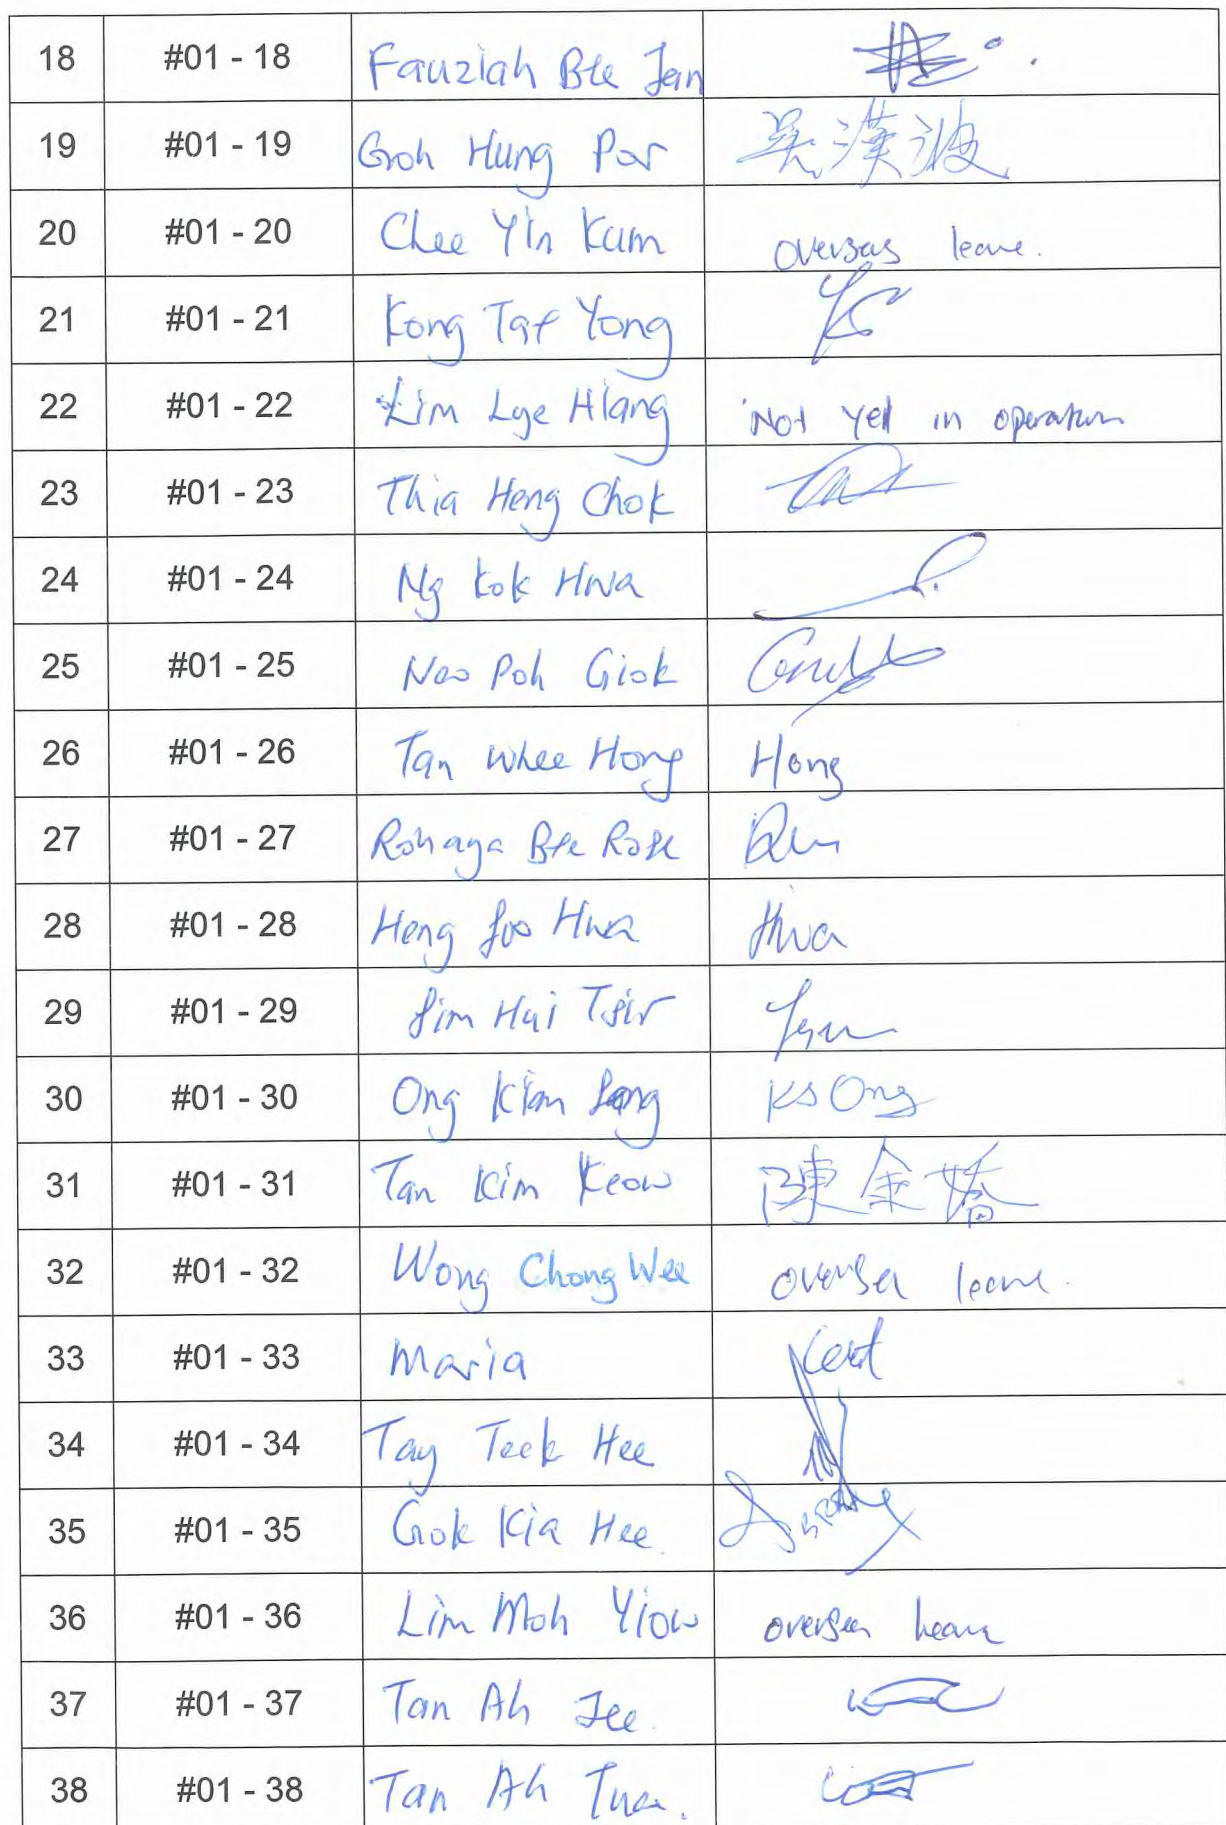 18 #01 - 18 Fauziah Bte Jan
19 #01 - 19 Goh Hung Por 吴漢波
20 #01 - 20 Chee Yin Kum overseas leave.
21 #01 - 21 Kong Tat Yong
22 #01 - 22 Lim Lye Hiang Not yet in operation
23 #01 - 23 Thia Heng Chok
24 #01 - 24 Ng Kok Hwa
25 #01 - 25 Neo Poh Giok
26 #01 - 26 Tan Whee Hong Hong
27 #01 - 27 Rohaya Bte
28 #01 - 28 Heng Soo Hwa Hwa
29 #01 - 29 Sim Hai
30 #01 - 30 Ong Kian Song KS Ong
31 #01 - 31 Tan Kim Keow 陳金嬌
32 #01 - 32 Wong Chong Wee oversea leave.
33 #01 - 33 Maria
34 #01 - 34 Tay Teck Hee
35 #01 - 35 Gok Kia Hee.
36 #01 - 36 Lim Moh Yiow oversea leave
37 #01 - 37 Tan Ah Jee.
38 #01 - 38 Tan Ah